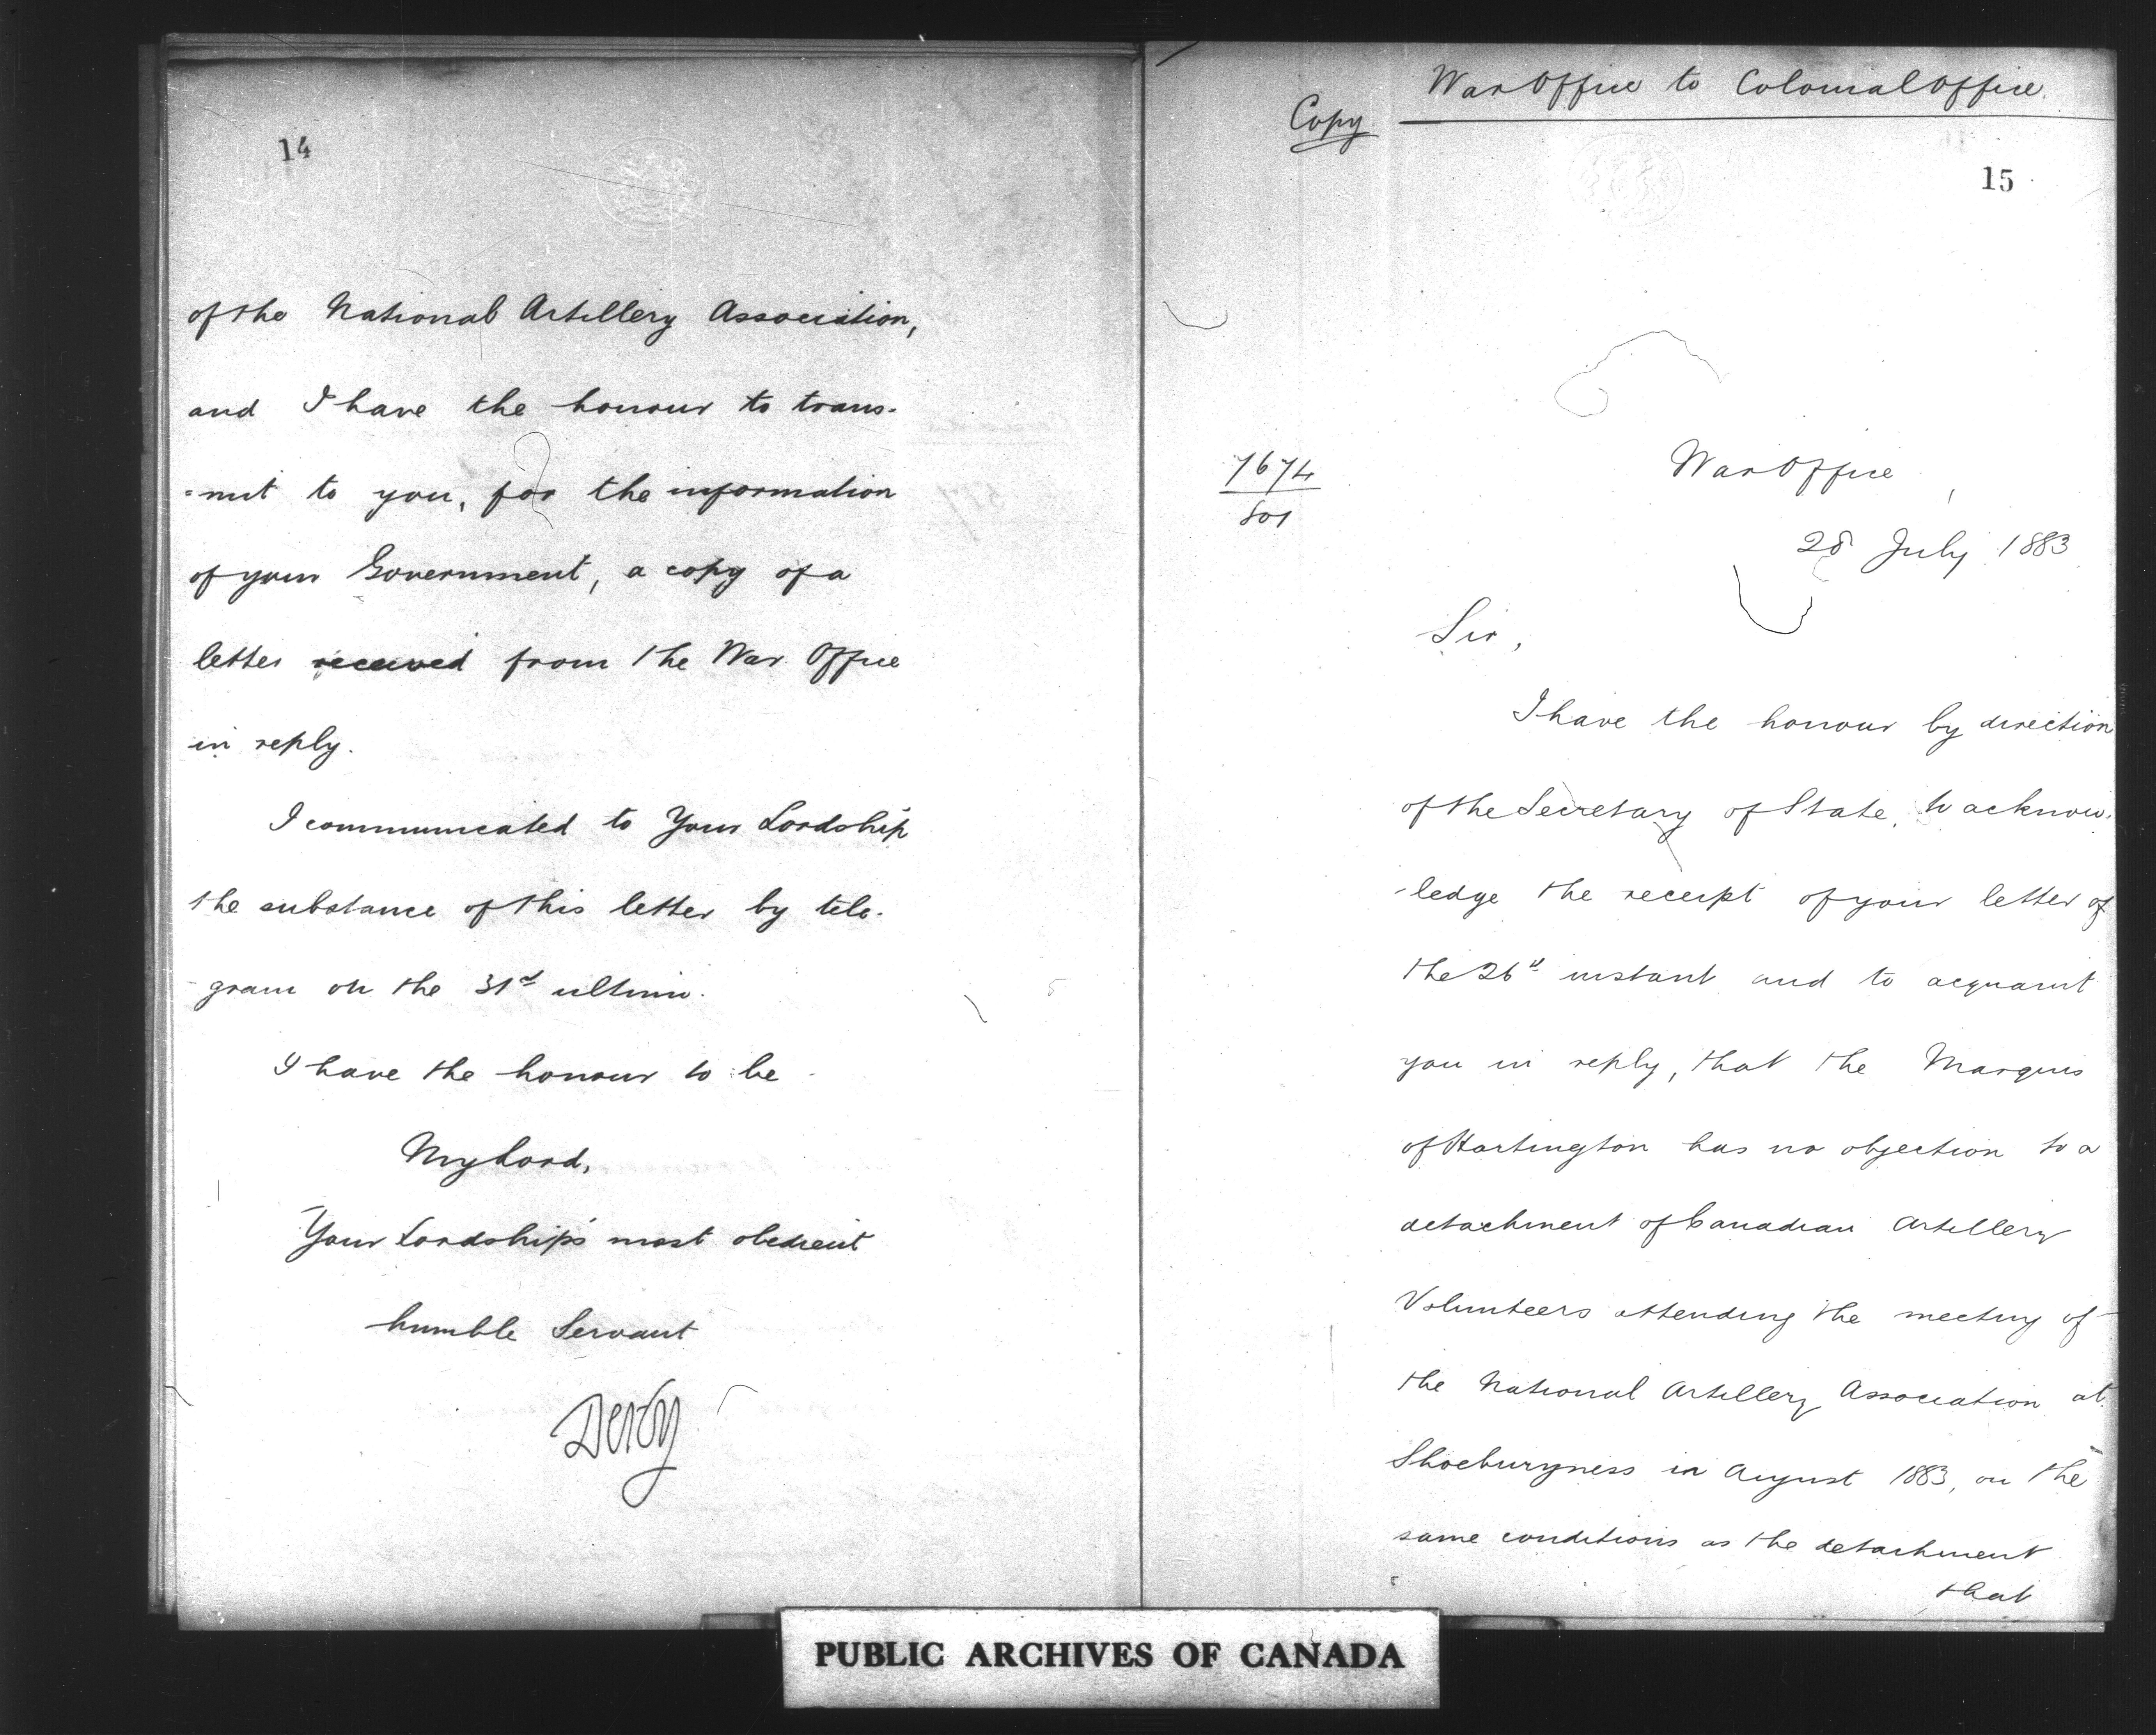 14
of the National Artillery Association,
and I have the honour to trans-
=mit to you, for the information
of your Government, a copy of a
letter received from the War Office
in reply.
I communicated to Your Lordship
the substance of this letter by tele-
-gram on the 31st ultimo.
I have the honour to be
My Lord,
Your Lordship's most obedient
humble Servant
Derby
War Office to Colonial Office.
Copy
15
7674
801
War Office,
28 July 1883
Sir,
I have the honour by direction
of the Secretary of State, to acknow-
-ledge the receipt of your letter of
the 26th instant and to acquaint
you in reply, that the Marquis
of Hartington has no objection to a
detachment of Canadian Artillery
Volunteers attending the meeting of
the National Artillery Association at
Shoeburyness in August 1883, on the
same conditions as the detachment
that
PUBLIC ARCHIVES OF CANADA